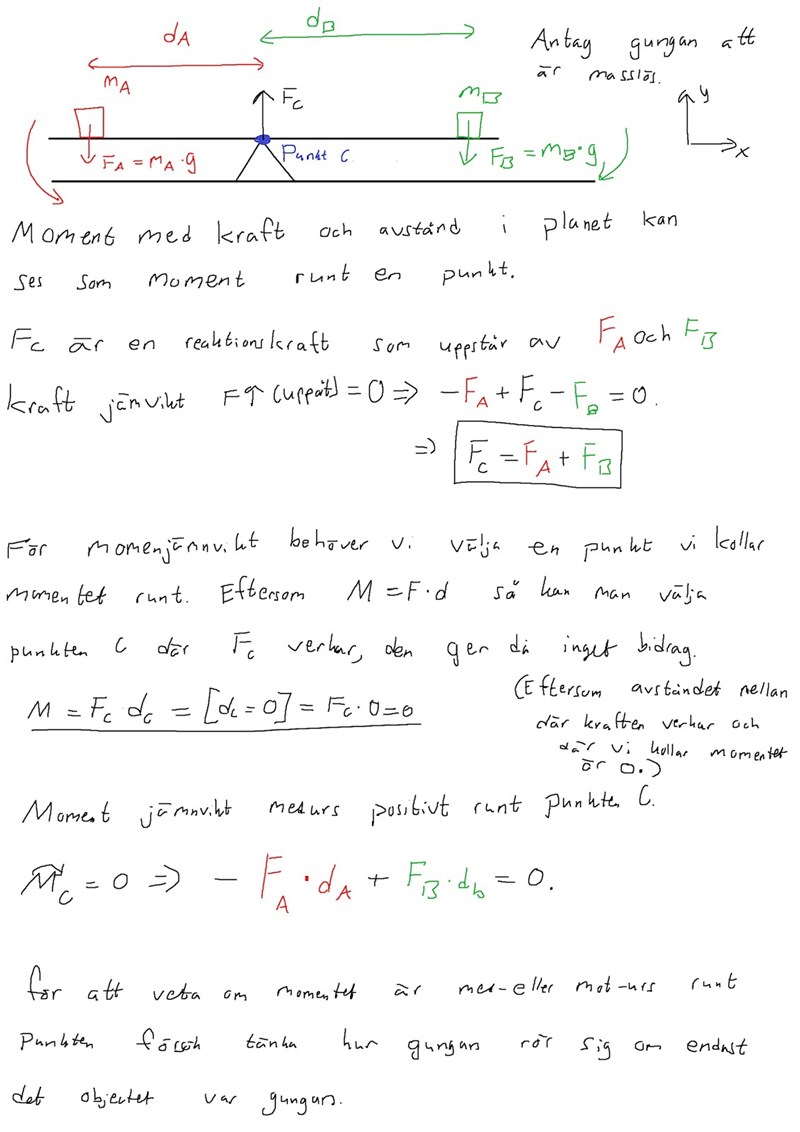 d_A
d_B
Antag gungan att
är masslös.
m_A
F_C
m_B
y
x
F_A = m_A · g
Punkt C
F_B = m_B · g
Moment med kraft och avstånd i planet kan
ses som moment runt en punkt.
F_C är en reaktionskraft som uppstår av F_A och F_B
kraft jämvikt F↑ (uppåt) = 0 => -F_A + F_C - F_B = 0.
=> F_C = F_A + F_B
För momenjämnvikt behöver vi välja en punkt vi kollar
momentet runt. Eftersom M = F · d så kan man välja
punkten C där F_C verkar, den ger då inget bidrag.
M = F_C d_C = [d_C = 0] = F_C · 0 = 0
(Eftersom avståndet mellan
där kraften verkar och
där vi kollar momentet
är 0.)
Moment jämnvikt medurs positivt runt punkten C.
M_C = 0 => - F_A · d_A + F_B · d_b = 0.
för att veta om momentet är med-eller mot-urs runt
Punkten försök tänka hur gungan rör sig om endast
det objectet var gungan.